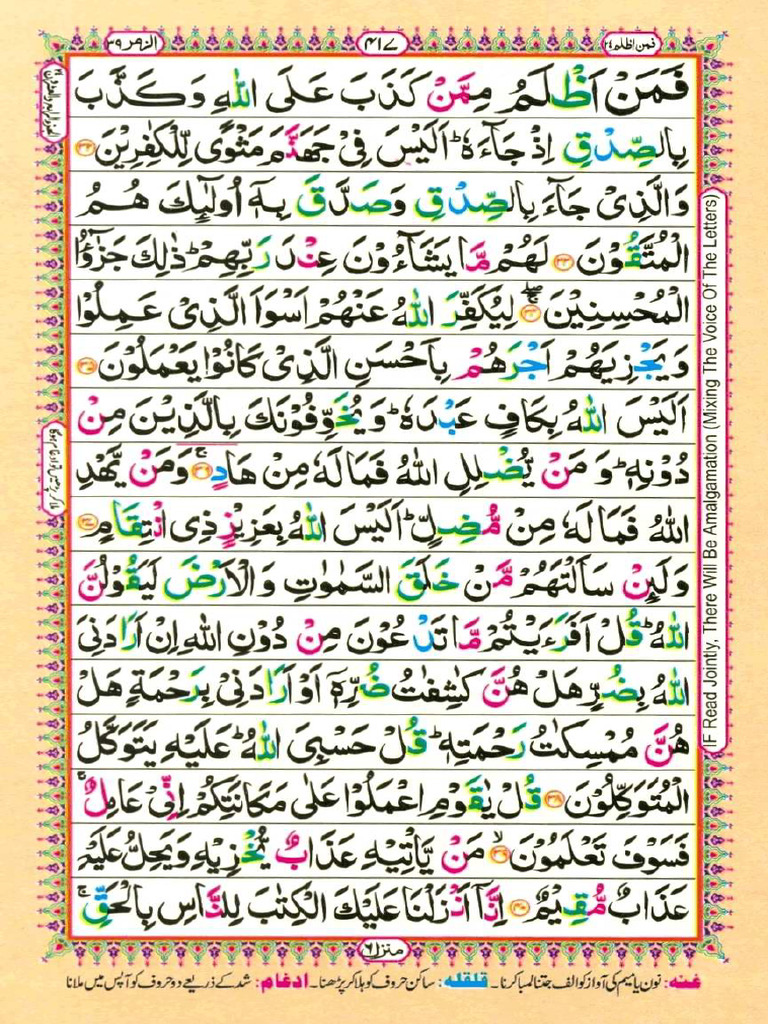 فمن اظلم ٢٤
٤١٧
الزمر ٣٩
فَمَنْ اَظْلَمُ مِمَّنْ كَذَبَ عَلَى اللّٰهِ وَكَذَّبَ
بِالصِّدْقِ اِذْ جَآءَهٗ ؕ اَلَيْسَ فِىْ جَهَنَّمَ مَثْوًى لِّلْكٰفِرِيْنَ ﴿۳۲﴾
وَالَّذِىْ جَآءَ بِالصِّدْقِ وَصَدَّقَ بِهٖۤ اُولٰٓئِكَ هُمُ
الْمُتَّقُوْنَ ﴿۳۳﴾ لَهُمْ مَّا يَشَآءُوْنَ عِنْدَ رَبِّهِمْ ؕ ذٰلِكَ جَزٰٓؤُا
الْمُحْسِنِيْنَ ﴿۳۴﴾ لِيُكَفِّرَ اللّٰهُ عَنْهُمْ اَسْوَاَ الَّذِىْ عَمِلُوْا
وَيَجْزِيَهُمْ اَجْرَهُمْ بِاَحْسَنِ الَّذِىْ كَانُوْا يَعْمَلُوْنَ ﴿۳۵﴾
اَلَيْسَ اللّٰهُ بِكَافٍ عَبْدَهٗ ؕ وَيُخَوِّفُوْنَكَ بِالَّذِيْنَ مِنْ
دُوْنِهٖ ؕ وَمَنْ يُّضْلِلِ اللّٰهُ فَمَا لَهٗ مِنْ هَادٍ ﴿۳۶﴾ وَمَنْ يَّهْدِ
اللّٰهُ فَمَا لَهٗ مِنْ مُّضِلٍّ ؕ اَلَيْسَ اللّٰهُ بِعَزِيْزٍ ذِى انْتِقَامٍ ﴿۳۷﴾
وَلَئِنْ سَاَلْتَهُمْ مَّنْ خَلَقَ السَّمٰوٰتِ وَالْاَرْضَ لَيَقُوْلُنَّ
اللّٰهُ ؕ قُلْ اَفَرَءَيْتُمْ مَّا تَدْعُوْنَ مِنْ دُوْنِ اللّٰهِ اِنْ اَرَادَنِىَ
اللّٰهُ بِضُرٍّ هَلْ هُنَّ كٰشِفٰتُ ضُرِّهٖۤ اَوْ اَرَادَنِىْ بِرَحْمَةٍ هَلْ
هُنَّ مُمْسِكٰتُ رَحْمَتِهٖ ؕ قُلْ حَسْبِىَ اللّٰهُ ؕ عَلَيْهِ يَتَوَكَّلُ
الْمُتَوَكِّلُوْنَ ﴿۳۸﴾ قُلْ يٰقَوْمِ اعْمَلُوْا عَلٰى مَكَانَتِكُمْ اِنِّىْ عَامِلٌ ۚ
فَسَوْفَ تَعْلَمُوْنَ ﴿۳۹﴾ مَنْ يَّاْتِيْهِ عَذَابٌ يُّخْزِيْهِ وَيَحِلُّ عَلَيْهِ
عَذَابٌ مُّقِيْمٌ ﴿۴۰﴾ اِنَّاۤ اَنْزَلْنَا عَلَيْكَ الْكِتٰبَ لِلنَّاسِ بِالْحَقِّ ۚ
منزل ٦
غنه: نون یا میم کی آواز کو الف جتنا لمبا کرنا۔ قلقله: ساکن حروف کو ہلا کر پڑھنا۔ ادغام: شد کے ذریعے دو حروف کو آپس میں ملانا
IF Read Jointly, There Will Be Amalgamation (Mixing The Voice Of The Letters)